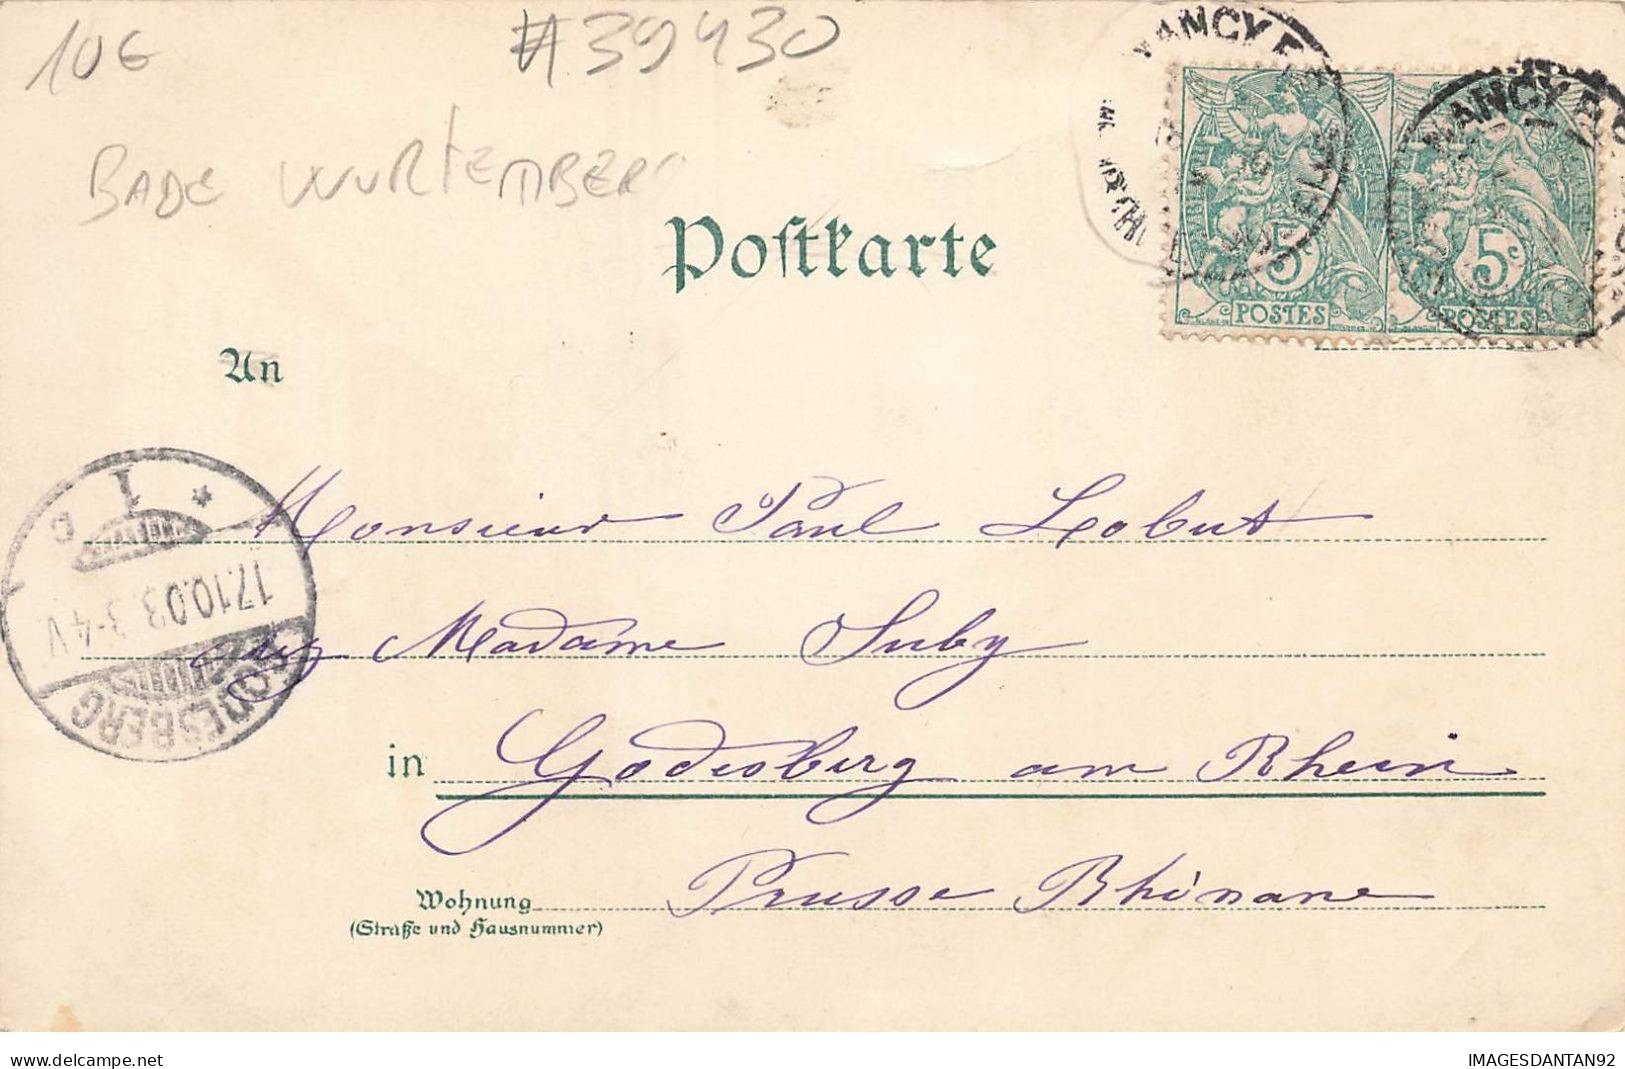 10€
#39430
BADE WURTEMBERG
NANCY
NANCY
5c
5c
POSTES
POSTES
Postkarte
An
Monsieur Paul Lobut
chez Madame Suby
in Godesberg am Rhein
Prusse Rhénane
Wohnung
(Straße und Hausnummer)
GODESBERG
17.10.03. 3-4 V.
* 1 c
delcampe.net
IMAGESDANTAN92